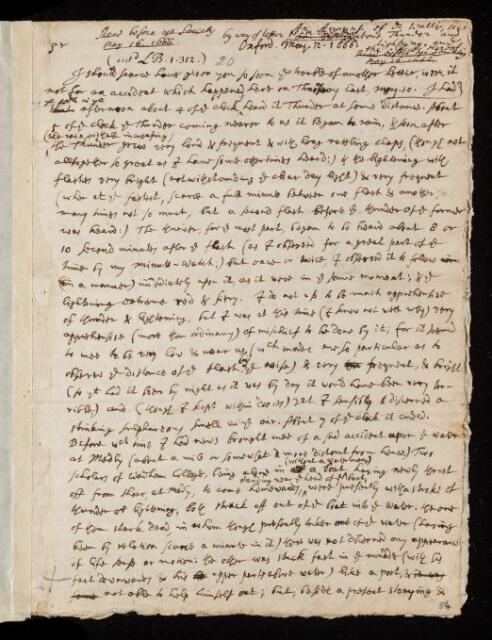 Read before ye Society by way of letter An Account of Dr Wallis,
May 16. 1666. Thunder and
Oxford. May. 12. 1666.
(entd L.B. 1. 312.) 20
I should scarce have given you so soon ye trouble of another letter, were it
not for an accident which happened here on Thursday last, may. 10. I had
afternoon about 4 of ye clock heard it Thunder at some distance. About
5 of ye clock ye Thunder coming nearer to us it began to rain, & soon after
ye rain withall increasing
the Thunder grew very loud & frequent & with long rattling claps, (though not
altogether so great as I have some other times heard:) & ye lightening with
flashes very bright (notwithstanding ye clear day light) & very frequent
(when at ye fastest, scarce a full minute between one flash & another;
many times not so much, but a second flash before ye thunder of ye former
was heard:) The thunder, for ye most part, began to be heard about 8 or
10 second minutes after ye flash (as I observed for a great part of ye
time by my minute-watch;) but once or twice I observed it to follow
(in a manner) immediately upon it, as it were in ye same moment; & ye
lightening extreme red & fiery. I do not use to be much apprehensive
of thunder & lightening, but I was at this time (I know not well why) very
apprehensive (more then ordinary) of mischief to be done by it; for it seemed
to mee to be very low & near us, (wch made me so particular as to
observe ye distance of ye flash by ye noise) & very frequent, & bright
(so yt had it been by night as it was by day it would have been very ter-
rible) and (though I kept within doors) yet I sensibly discerned a
stinking sulphureous smell in ye air. About 7 of ye clock it ended.
Before yet time I had news brought mee of a sad accident upon ye water
at Medly (about a mile or somewhat more distant from hence) Two
scholars of Wadham College, being alone in a boat (without a waterman) having newly thrust
off from shore, at Medly, to come homewards,
standing near ye head of ye boat,
were presently with a stroke of
thunder or lightening, both struck off out of ye boat into ye water. The one
of them stark dead in whom though presently taken out of ye water (having
been by relation scarce a minute in it) there was not discerned any appearance
of life sense or motion: ye other was stuck fast in ye mudde (with his
feet downwards & his upper parts above water) like a post,
not able to help himself out; but, beside a present stonying &